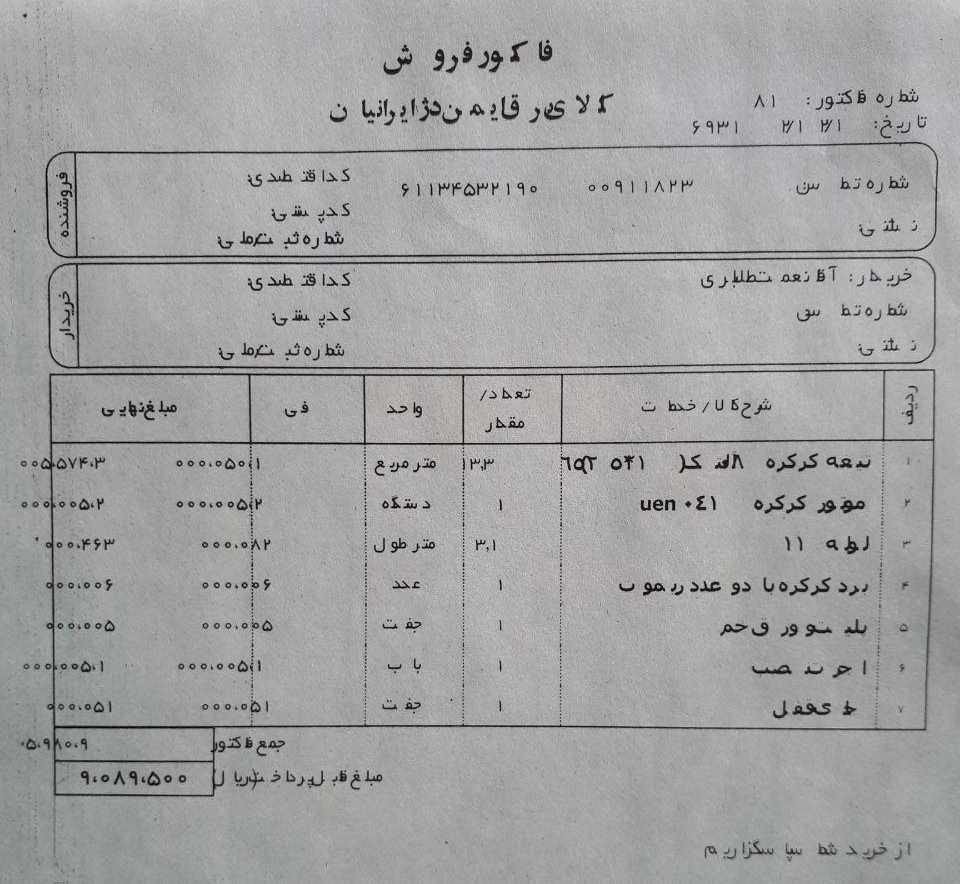 فاکتور فروش
کالای برقی ایمن دژ ایرانیان
شماره فاکتور: ۸۱
تاریخ: ۶۹۳۱
فروشنده
شماره تماس ۰۰۹۱۱۸۲۳ ۶۱۱۳۴۵۳۲۱۹۰ کد اقتصادی:
کد پستی:
نشانی: شماره ثبت/ملی:
خریدار
خریدار: آقا نعمت طلابری کد اقتصادی:
شماره تماس کد پستی:
نشانی: شماره ثبت/ملی:
ردیف شرح کالا / خدمات تعداد/مقدار واحد فی مبلغ نهایی
۱ تیغه کرکره ۱۳.۳ متر مربع ۰۰۰،۰۵۰،۱ ۰۰۵،۵۷۴،۳
۲ موتور کرکره uen ۰٤۱ ۱ دستگاه ۰۰۰،۰۰۵،۲ ۰۰۰،۰۰۵،۲
۳ لوله ۱۱ ۳،۱ متر طول ۰۰۰،۰۸۲ ۰۰۰،۴۶۳
۴ برد کرکره با دو عدد ریموت ۱ عدد ۰۰۰،۰۰۶ ۰۰۰،۰۰۶
۵ پلیت و ور ق خم ۱ جفت ۰۰۰،۰۰۵ ۰۰۰،۰۰۵
۶ اجرت نصب ۱ باب ۰۰۰،۰۰۵،۱ ۰۰۰،۰۰۵،۱
۷ جای قفل ۱ جفت ۰۰۰،۰۵۱ ۰۰۰،۰۵۱
جمع فاکتور ۰۵،۹۸۰،۹
مبلغ قابل پرداخت (ریال) ۹،۰۸۹،۵۰۰
از خرید شما سپاسگزاریم